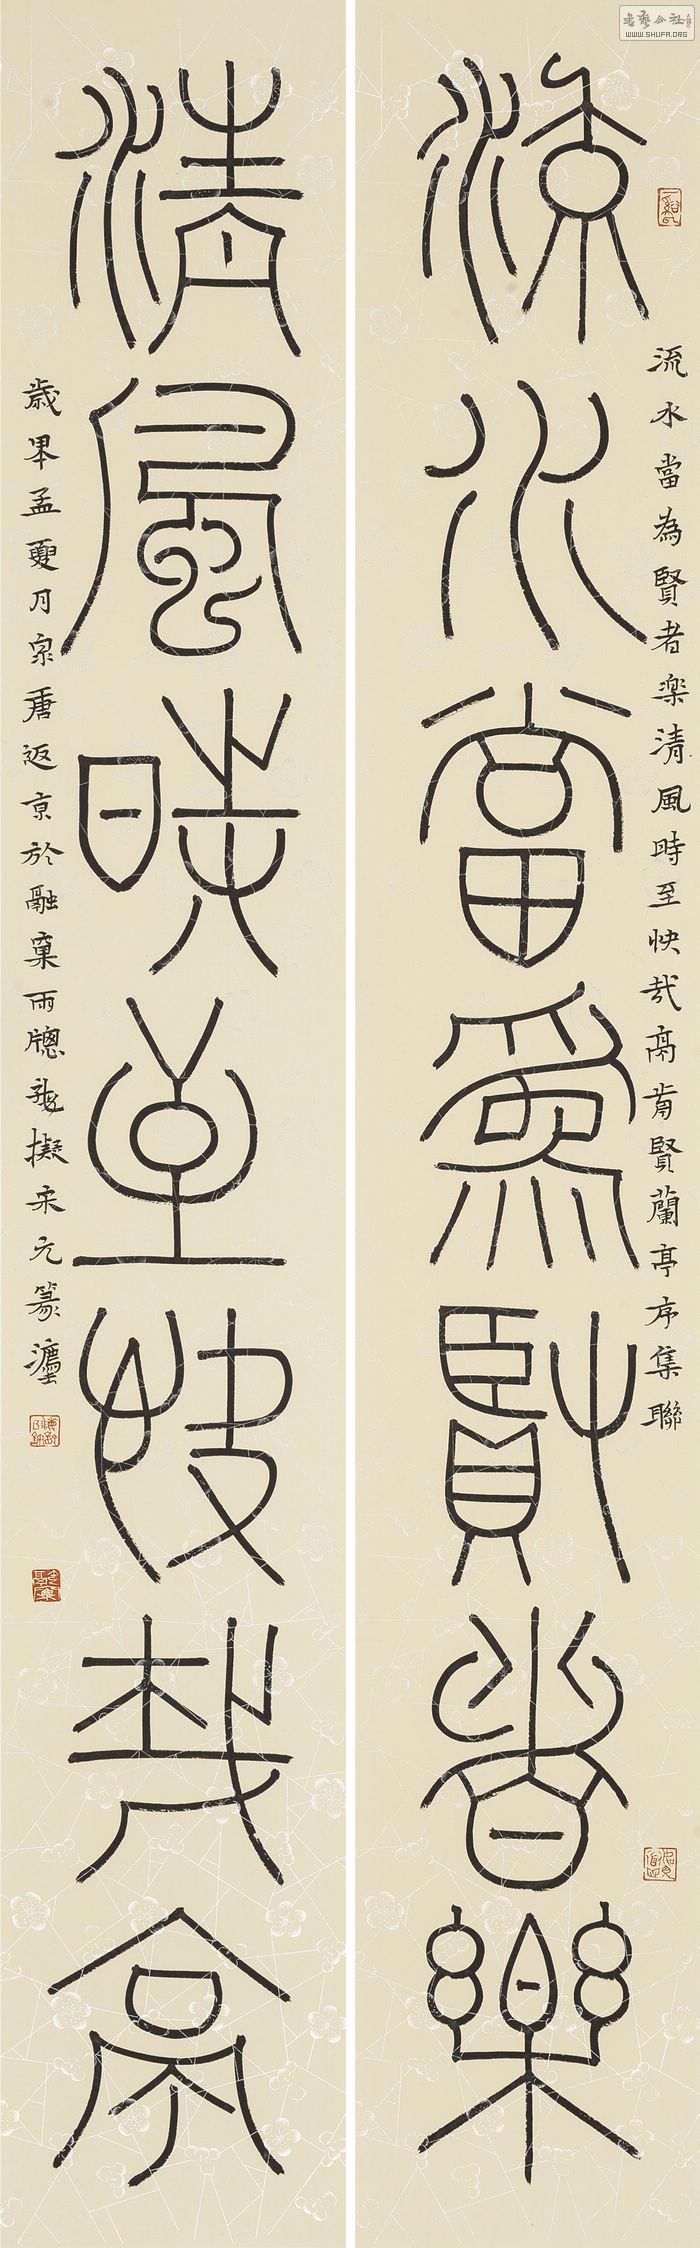 流水當為賢者樂
流水當為賢者樂清風時至快哉亭前賢蘭亭序集聯
清風時至快哉亭
歲甲孟夏月泉唐返京於融窠雨牕擬宋元篆瀍
書藝公社
WWW.SHUFA.ORG